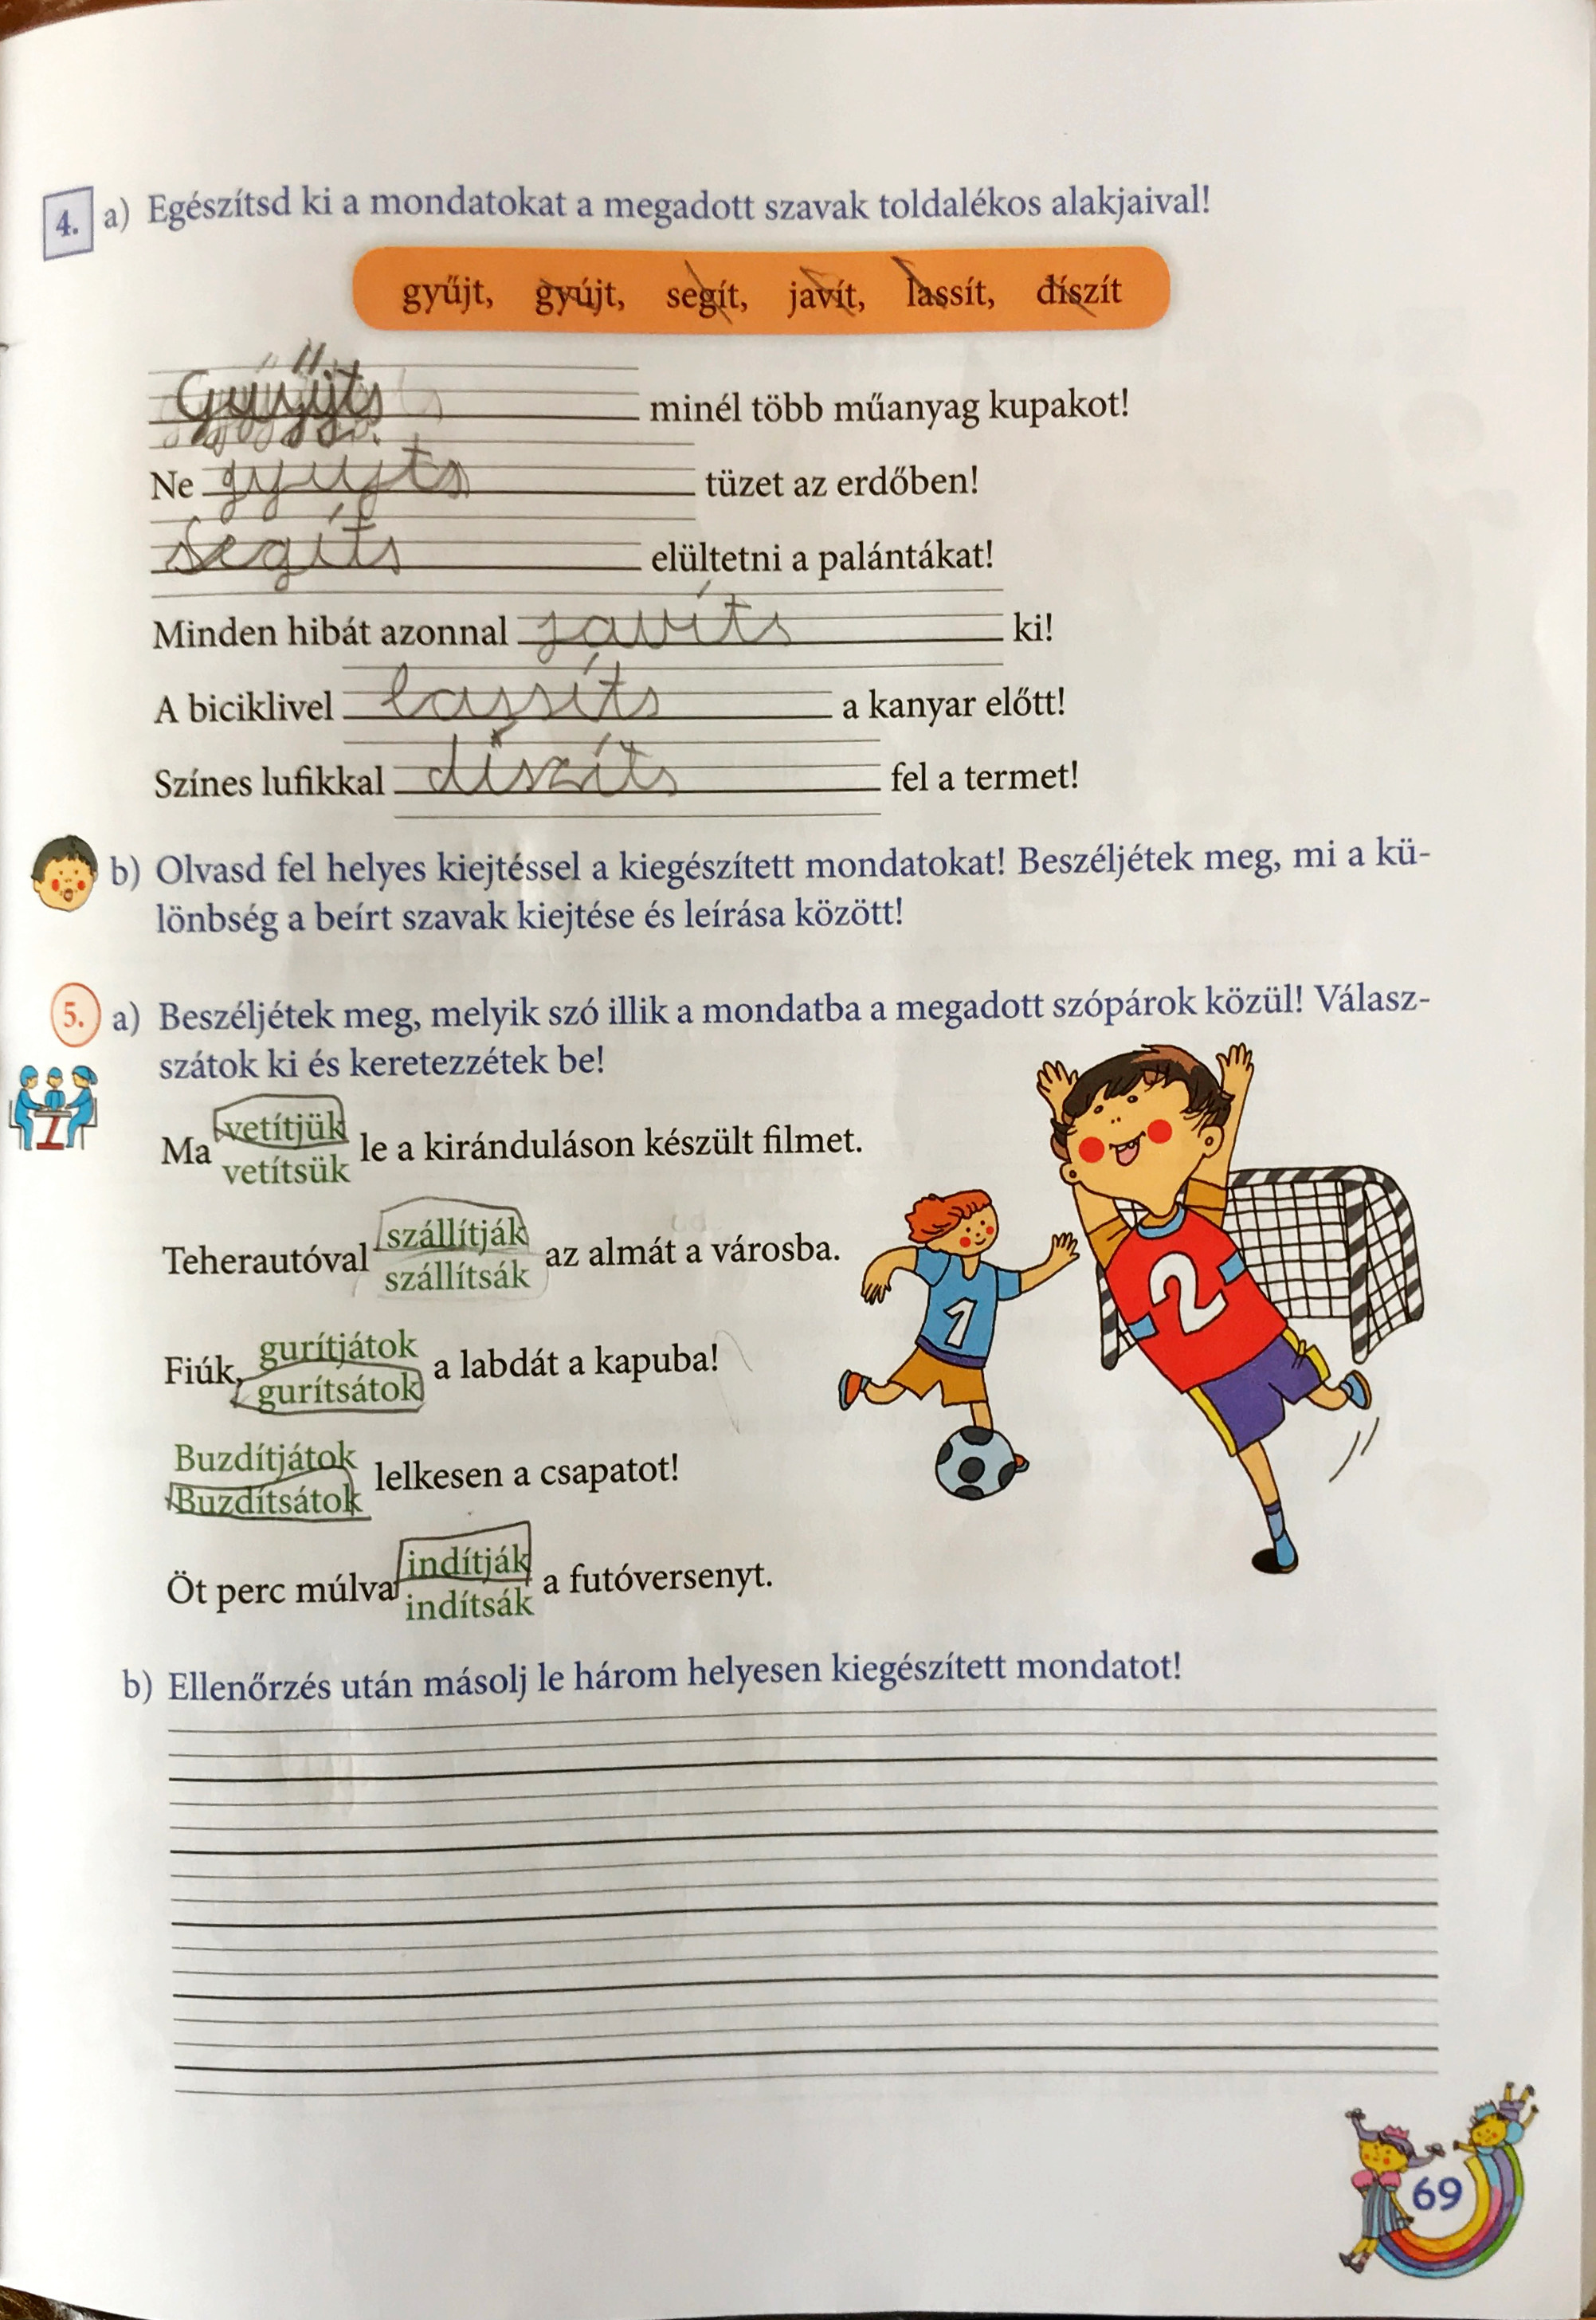 4. a) Egészítsd ki a mondatokat a megadott szavak toldalékos alakjaival!
gyűjt, gyújt, segít, javít, lassít, díszít
Gyűjts minél több műanyag kupakot!
Ne gyujts tüzet az erdőben!
Segíts elültetni a palántákat!
Minden hibát azonnal javíts ki!
A biciklivel lassíts a kanyar előtt!
Színes lufikkal díszíts fel a termet!
b) Olvasd fel helyes kiejtéssel a kiegészített mondatokat! Beszéljétek meg, mi a kü-
lönbség a beírt szavak kiejtése és leírása között!
5. a) Beszéljétek meg, melyik szó illik a mondatba a megadott szópárok közül! Válasz-
szátok ki és keretezzétek be!
vetítjük
Ma le a kiránduláson készült filmet.
vetítsük
szállítják
Teherautóval az almát a városba.
szállítsák
gurítjátok
Fiúk, a labdát a kapuba!
gurítsátok
Buzdítjátok
lelkesen a csapatot!
Buzdítsátok
indítják
Öt perc múlva a futóversenyt.
indítsák
1
2
b) Ellenőrzés után másolj le három helyesen kiegészített mondatot!
69